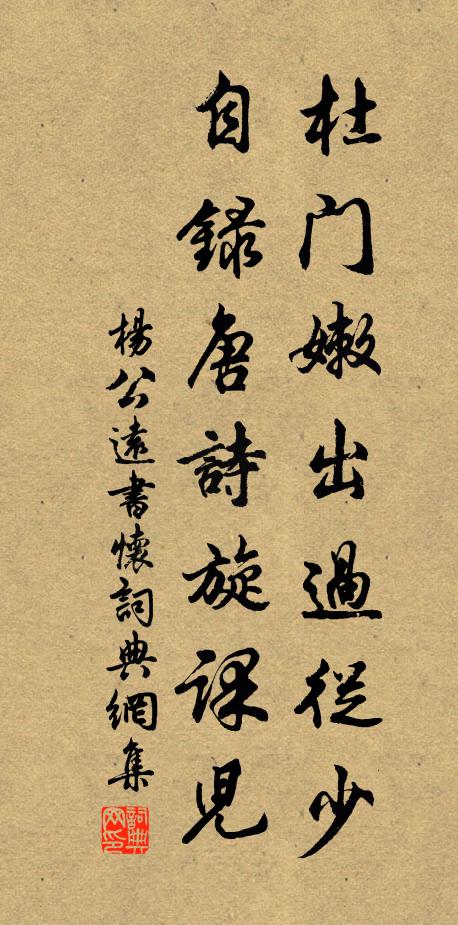 杜门嫩出過從少
自録唐詩旋課兒
楊公遠書懷詞典網集
詞典
网印